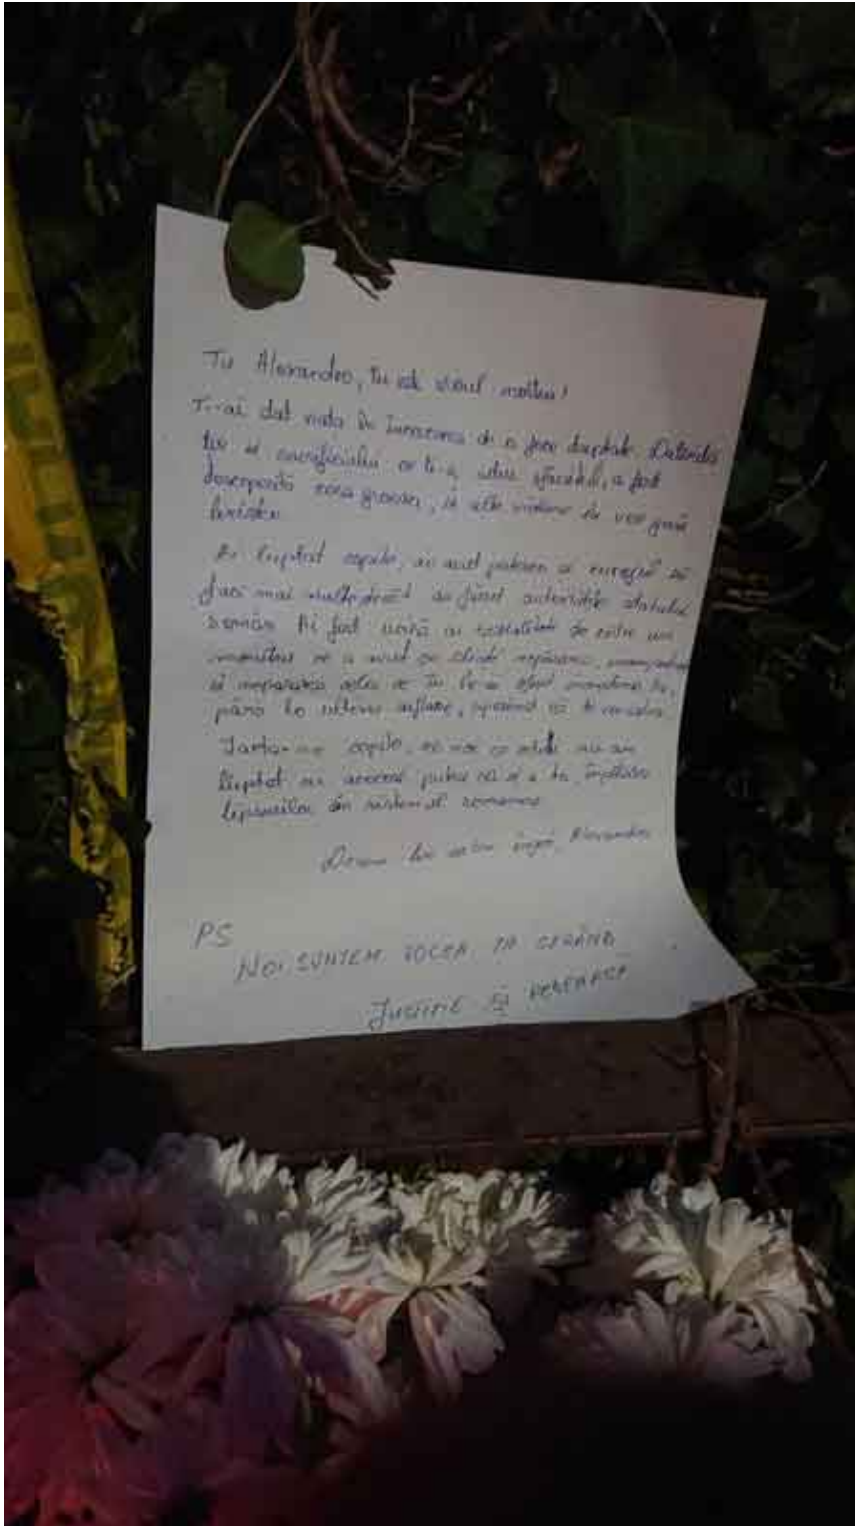 Tu Alexandra, tu ești eroul nostru!
Ți-ai dat viața în încercarea de a face dreptate. Datorită
ție și sacrificiului ce ți-a adus sfârșitul, a fost
descoperită casa groazei, și alte victime își vor găsi
liniștea.
Ai luptat copilo, ai avut puterea și curajul să
faci mai multe decât au făcut autoritățile statului
român. Ai fost ucisă cu de către un
monstru ce a avut
și nepăsarea celor ce
până la ultima suflare, sperând că te vor salva.
Iartă-ne copilo, că noi ca adulți nu am
luptat cu aceeași putere ca și a ta, împotriva
lipsurilor din sistemul românesc.
Drum lin către îngeri, Alexandra
PS
NOI SUNTEM VOCEA TA CERÂND
JUSTIȚIE ȘI